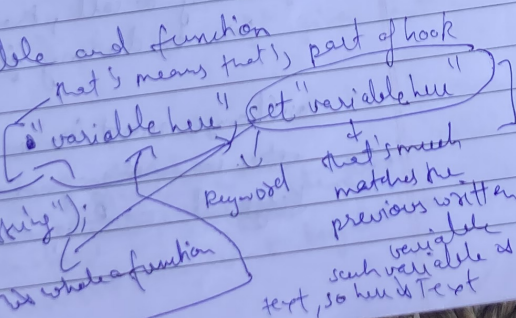 ble and function
that's means that's part of hook
["variable here", set "variable here"]
Keyword
that's much
matches the
previous written
variable
such variable as
text, so here is Text
king");
is whole a function